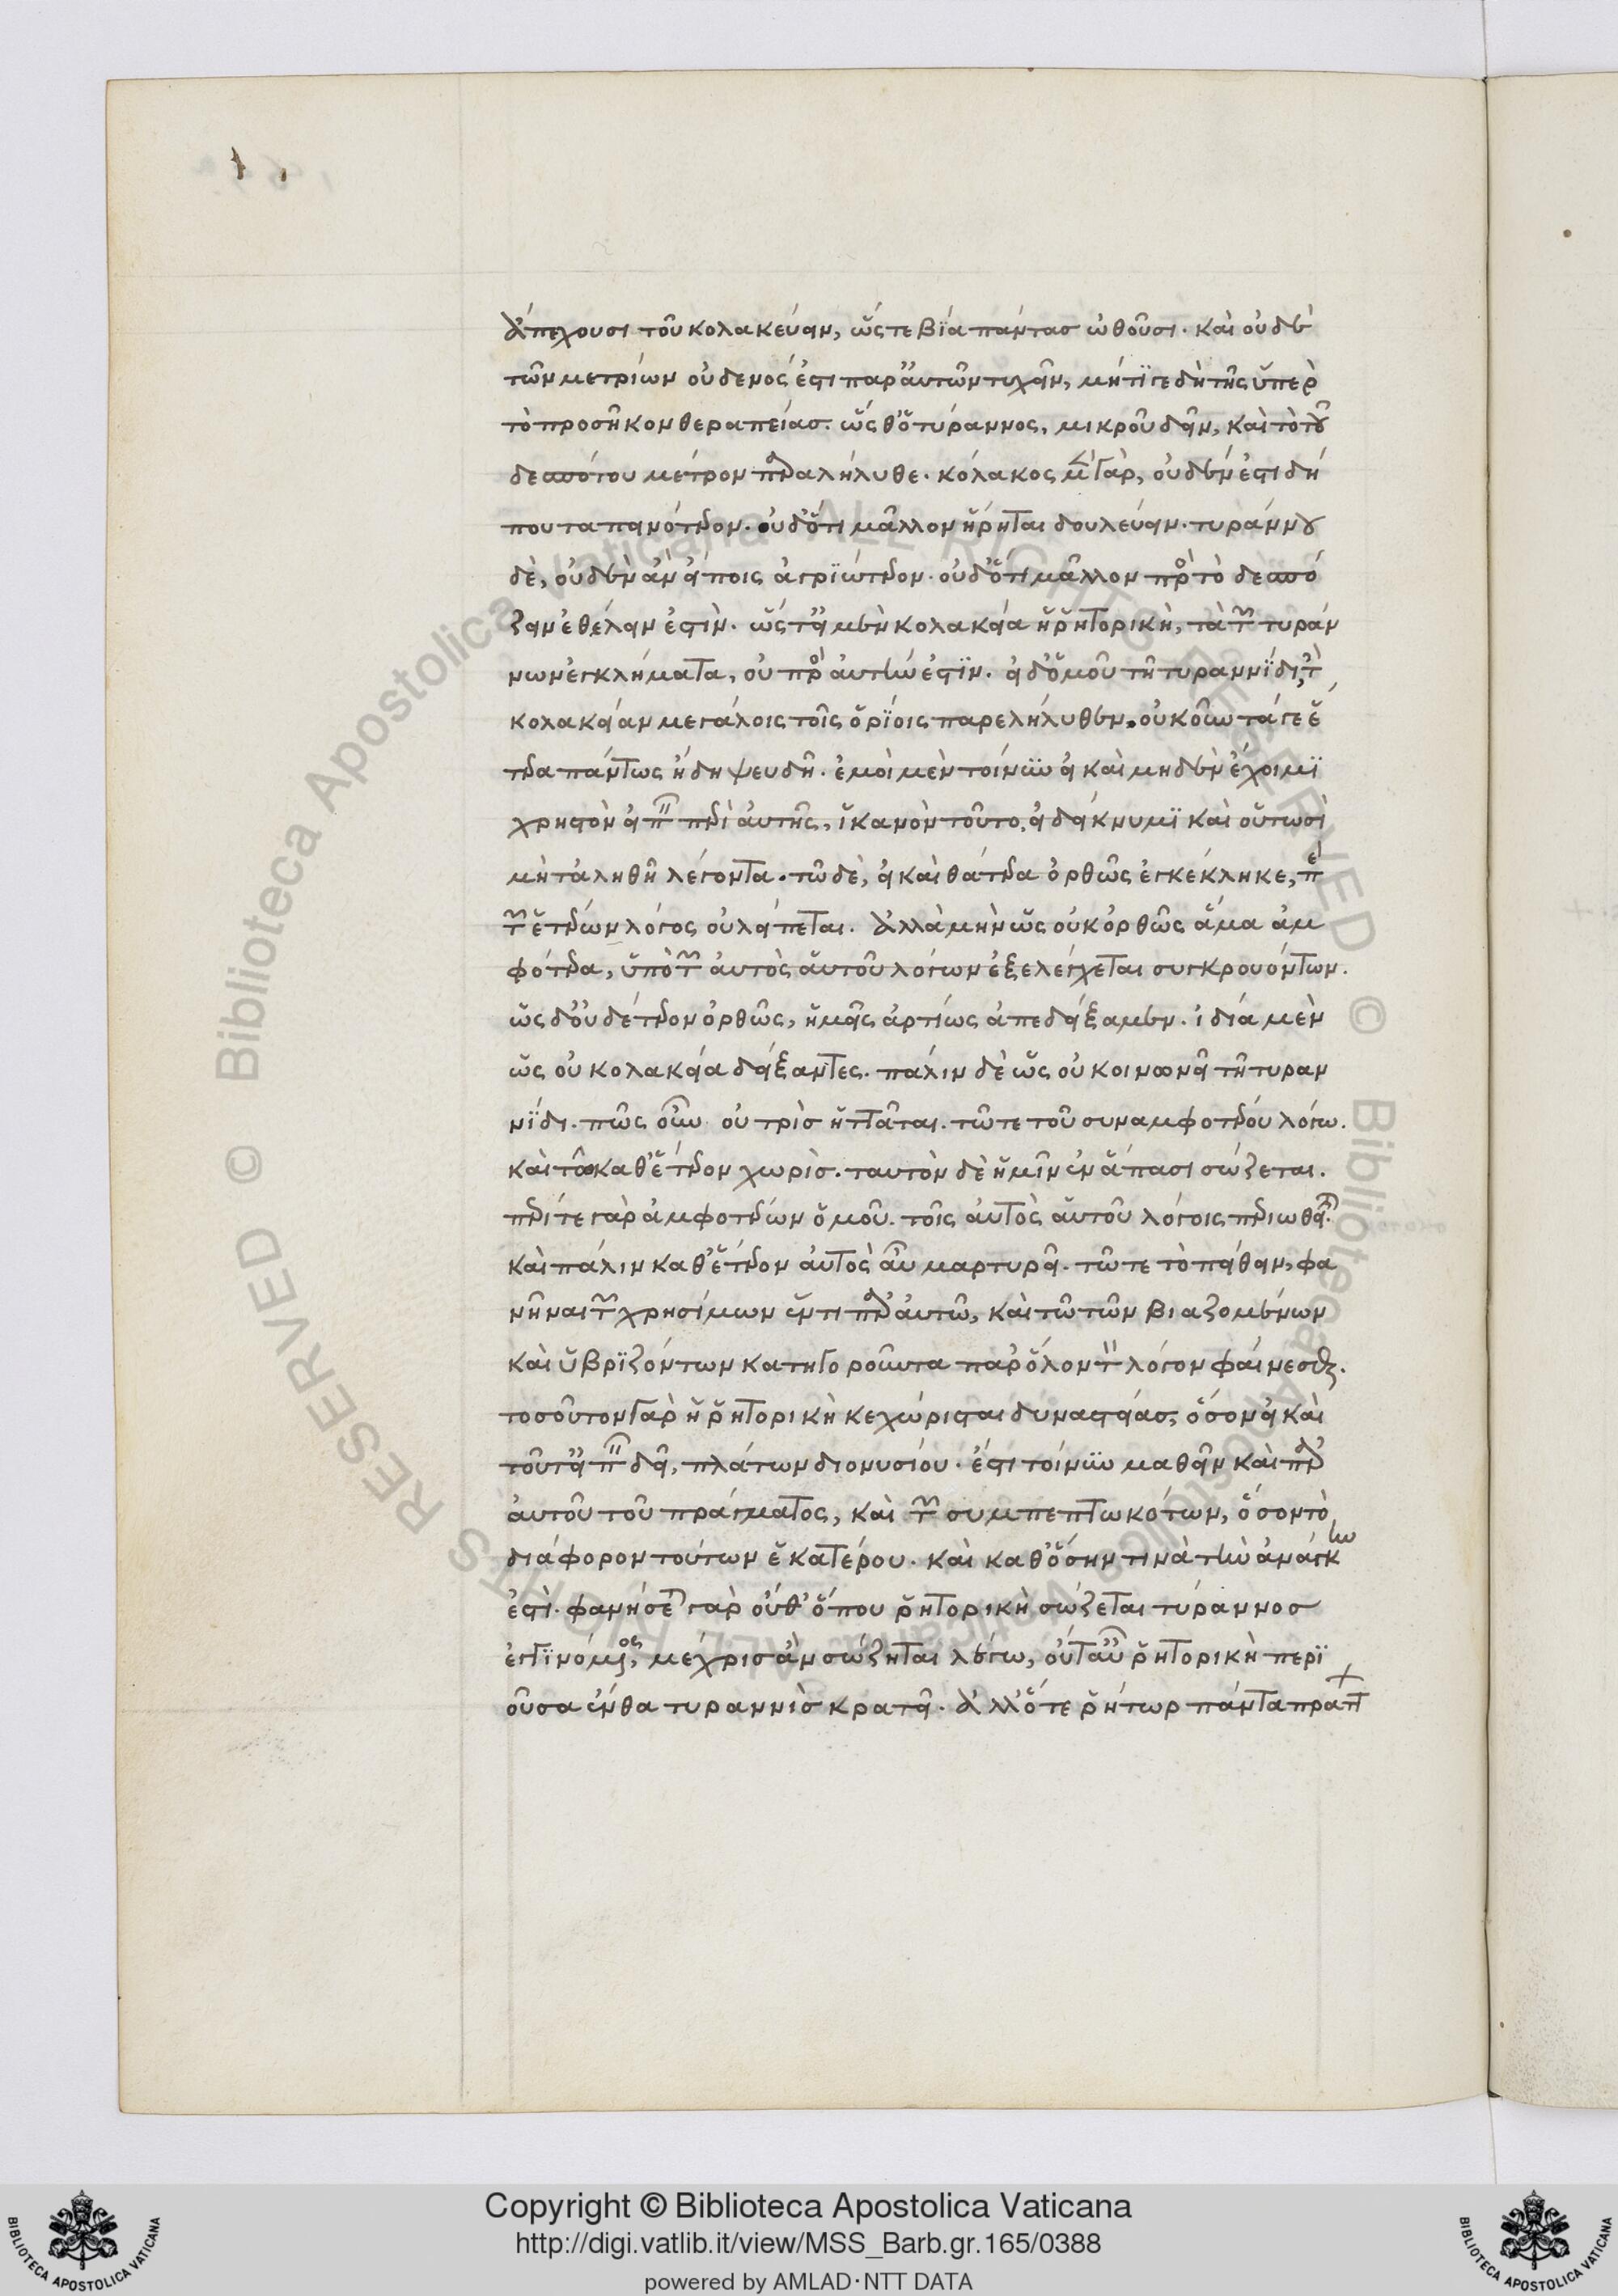 ἀπέχουσι τοῦ κολακεύειν, ὥστε βίᾳ πάντας ὠθοῦσι. καὶ οὐδὲ
τῶν μετρίων οὐδενός ἐστι παρ' αὐτῶν τυχεῖν, μήτί γε δὴ τῆς ὑπὲρ
τὸ προσῆκον θεραπείας. ὥσθ' ὁ τύραννος, μικροῦ δεῖν, καὶ τὸ τοῦ
δεσπότου μέτρον παραλήλυθε. κόλακος μὲν γὰρ, οὐδέν ἐστι δή
που ταπεινότερον. οὐδ' ὅτι μᾶλλον ᾕρηται δουλεύειν. τυράννου
δὲ, οὐδὲν ἂν εἴποις ἀγριώτερον. οὐδ' ὅτι μᾶλλον πρὸς τὸ δεσπό
ζειν ἐθέλειν ἐστίν. ὥστ' εἰ μὲν κολακεία ἡ ῥητορικὴ, τὰ τῶν τυράν
νων ἐγκλήματα, οὐ πρὸς αὐτήν ἐστιν. εἰ δ' ὁμοῦ τῇ τυραννίδι, τὴν
κολακείαν μεγάλοις τοῖς ὁρίοις παρελήλυθεν. οὐκοῦν τά γε ἕ
τερα πάντως ἤδη ψευδῆ. ἐμοὶ μὲν τοίνυν εἰ καὶ μηδὲν ἔχοιμι
χρηστὸν εἰπεῖν περὶ αὐτῆς, ἱκανὸν τοῦτο, εἰ δείκνυμι καὶ οὑτωσὶ
μὴ τἀληθῆ λέγοντα. τῷ δὲ, εἰ καὶ θάτερα ὀρθῶς ἐγκέκληκε, περὶ
τῶν ἑτέρων λόγος οὐ λείπεται. ἀλλὰ μὴν ὡς οὐκ ὀρθῶς ἅμα ἀμ
φότερα, ὑπὸ τῶν αὐτὸς αὑτοῦ λόγων ἐξελέγχεται συγκρουόντων.
ὡς δ' οὐδέτερον ὀρθῶς, ἡμεῖς ἀρτίως ἀπεδείξαμεν. ἰδίᾳ μὲν
ὡς οὐ κολακεία δείξαντες. πάλιν δὲ ὡς οὐ κοινωνεῖ τῇ τυραν
νίδι. πῶς οὖν οὐ τρὶς ἡττᾶται. τῷ τε τοῦ συναμφοτέρου λόγῳ.
καὶ τῷ καθ' ἕτερον χωρίς. ταυτὸν δὲ ἡμῖν ἐν ἅπασι σώζεται.
περί τε γὰρ ἀμφοτέρων ὁμοῦ. τοῖς αὐτὸς αὑτοῦ λόγοις περιωθεῖται.
καὶ πάλιν καθ' ἕτερον αὐτὸς αὖ μαρτυρεῖ. τῷ τε τὸ πείθειν, φα
νῆναι τῶν χρησίμων ἕν τι παρ' αὐτῷ, καὶ τῷ τῶν βιαζομένων
καὶ ὑβριζόντων κατηγοροῦντα παρ' ὅλον τὸν λόγον φαίνεσθαι.
τοσοῦτον γὰρ ἡ ῥητορικὴ κεχώρισται δυναστείας, ὅσον εἰ καὶ
τοῦτ' εἰπεῖν δεῖ, πλάτων διονυσίου. ἔστι τοίνυν μαθεῖν καὶ παρ'
αὐτοῦ τοῦ πράγματος, καὶ τῶν συμπεπτωκότων, ὅσον τὸ
διάφορον τούτων ἑκατέρου. καὶ καθ' ὅσην τινὰ τὴν ἀνάγκην
ἐστί. φανήσεται γὰρ οὔθ' ὅπου ῥητορικὴ σώζεται τύραννος
ἐγγινόμενος, μέχρις ἂν σώζηται λόγῳ, οὔτ' αὖ ῥητορικὴ περι
οῦσα ἔνθα τυραννὶς κρατεῖ. ἀλλ' ὅ τε ῥήτωρ πάντα πραττ
Copyright © Biblioteca Apostolica Vaticana
http://digi.vatlib.it/view/MSS_Barb.gr.165/0388
powered by AMLAD·NTT DATA